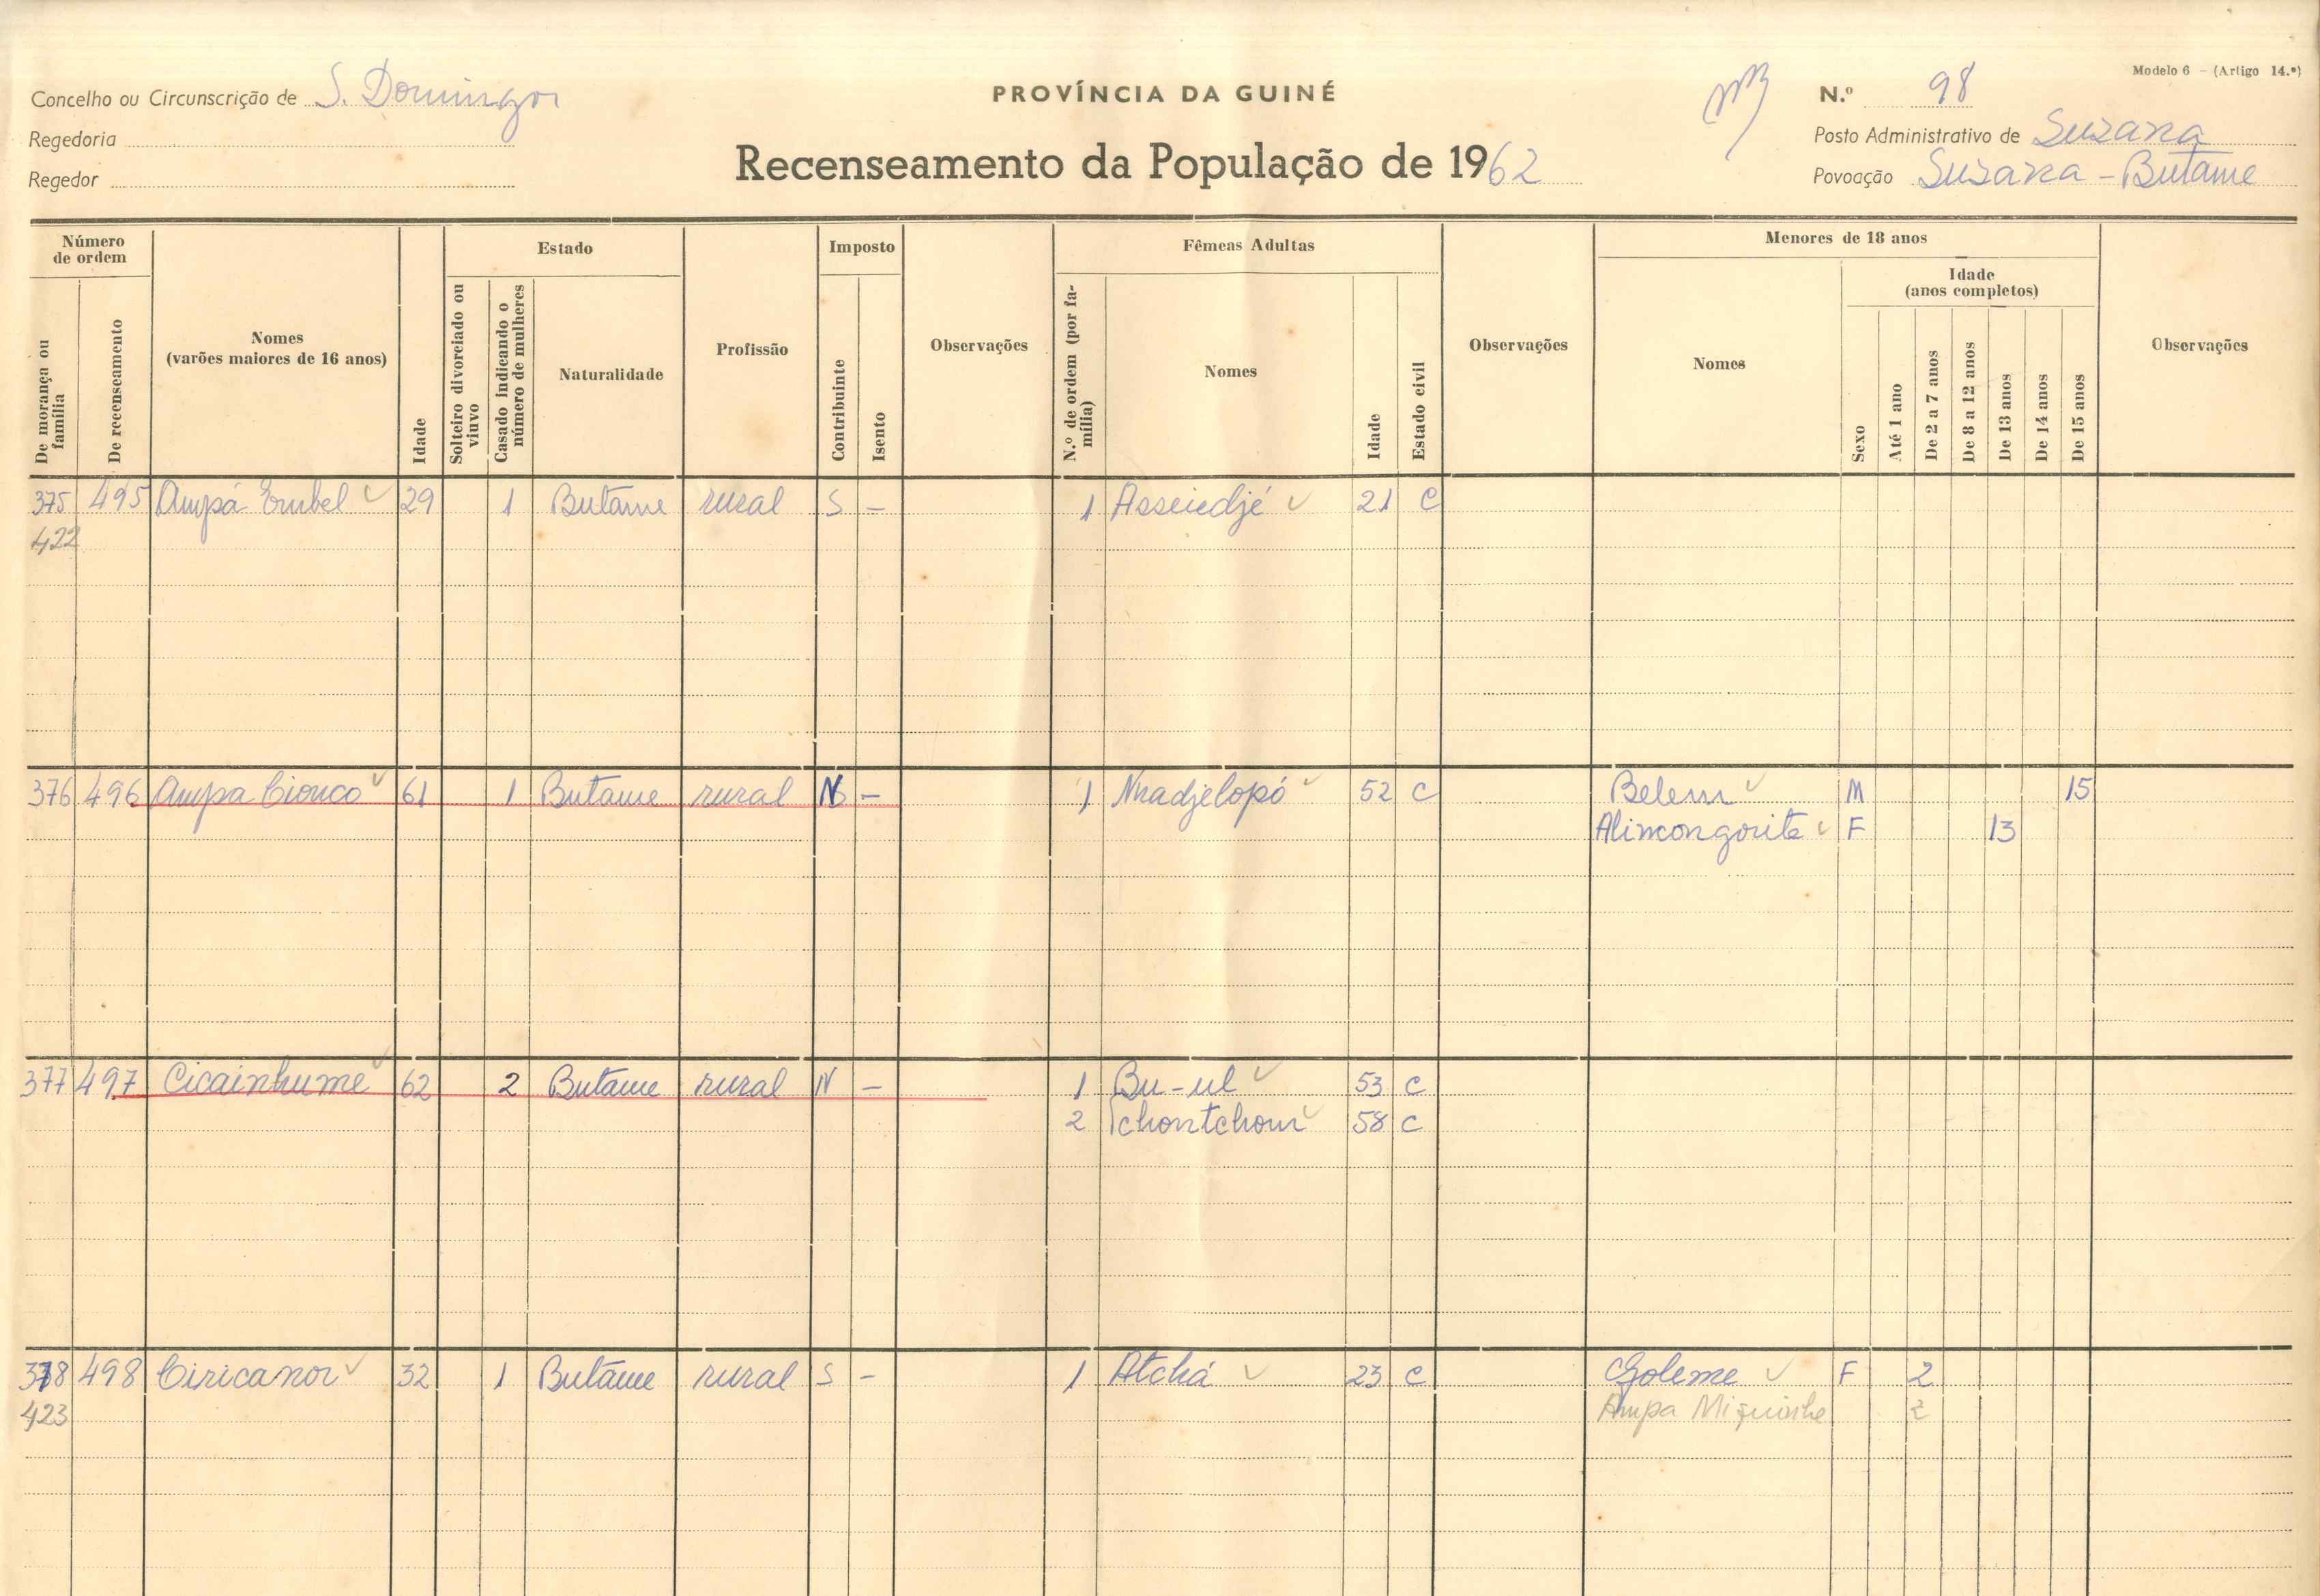 Modelo 6 – (Artigo 14.º)
Concelho ou Circunscrição de S. Domingos
PROVÍNCIA DA GUINÉ
N.º 98
Regedoria
Posto Administrativo de Suzana
Recenseamento da População de 1962
Regedor
Povoação Suzana - Butame
Número de ordem
De morança ou família
De recenseamento
Nomes
(varões maiores de 16 anos)
Idade
Estado
Solteiro divorciado ou viuvo
Casado indicando o número de mulheres
Naturalidade
Profissão
Imposto
Contribuinte
Isento
Observações
Fêmeas Adultas
N.º de ordem (por família)
Nomes
Idade
Estado civil
Observações
Menores de 18 anos
Nomes
Idade
(anos completos)
Sexo
Até 1 ano
De 2 a 7 anos
De 8 a 12 anos
De 13 anos
De 14 anos
De 15 anos
Observações
375 495 Ampá 29 1 Butame rural S – 1 Asseiedjé 21 C
422
376 496 Ampa Cionco 61 1 Butame rural N – 1 Nhadjelopó 52 C Belem M 15
Alincongorite F 13
377 497 Cicainhume 62 2 Butame rural N – 1 Bu-ul 53 C
2 Tchontchom 58 C
378 498 Ciricanor 32 1 Butame rural S – 1 Atchá 23 C Goleme F 2
423 Ampa Miquinhe 2